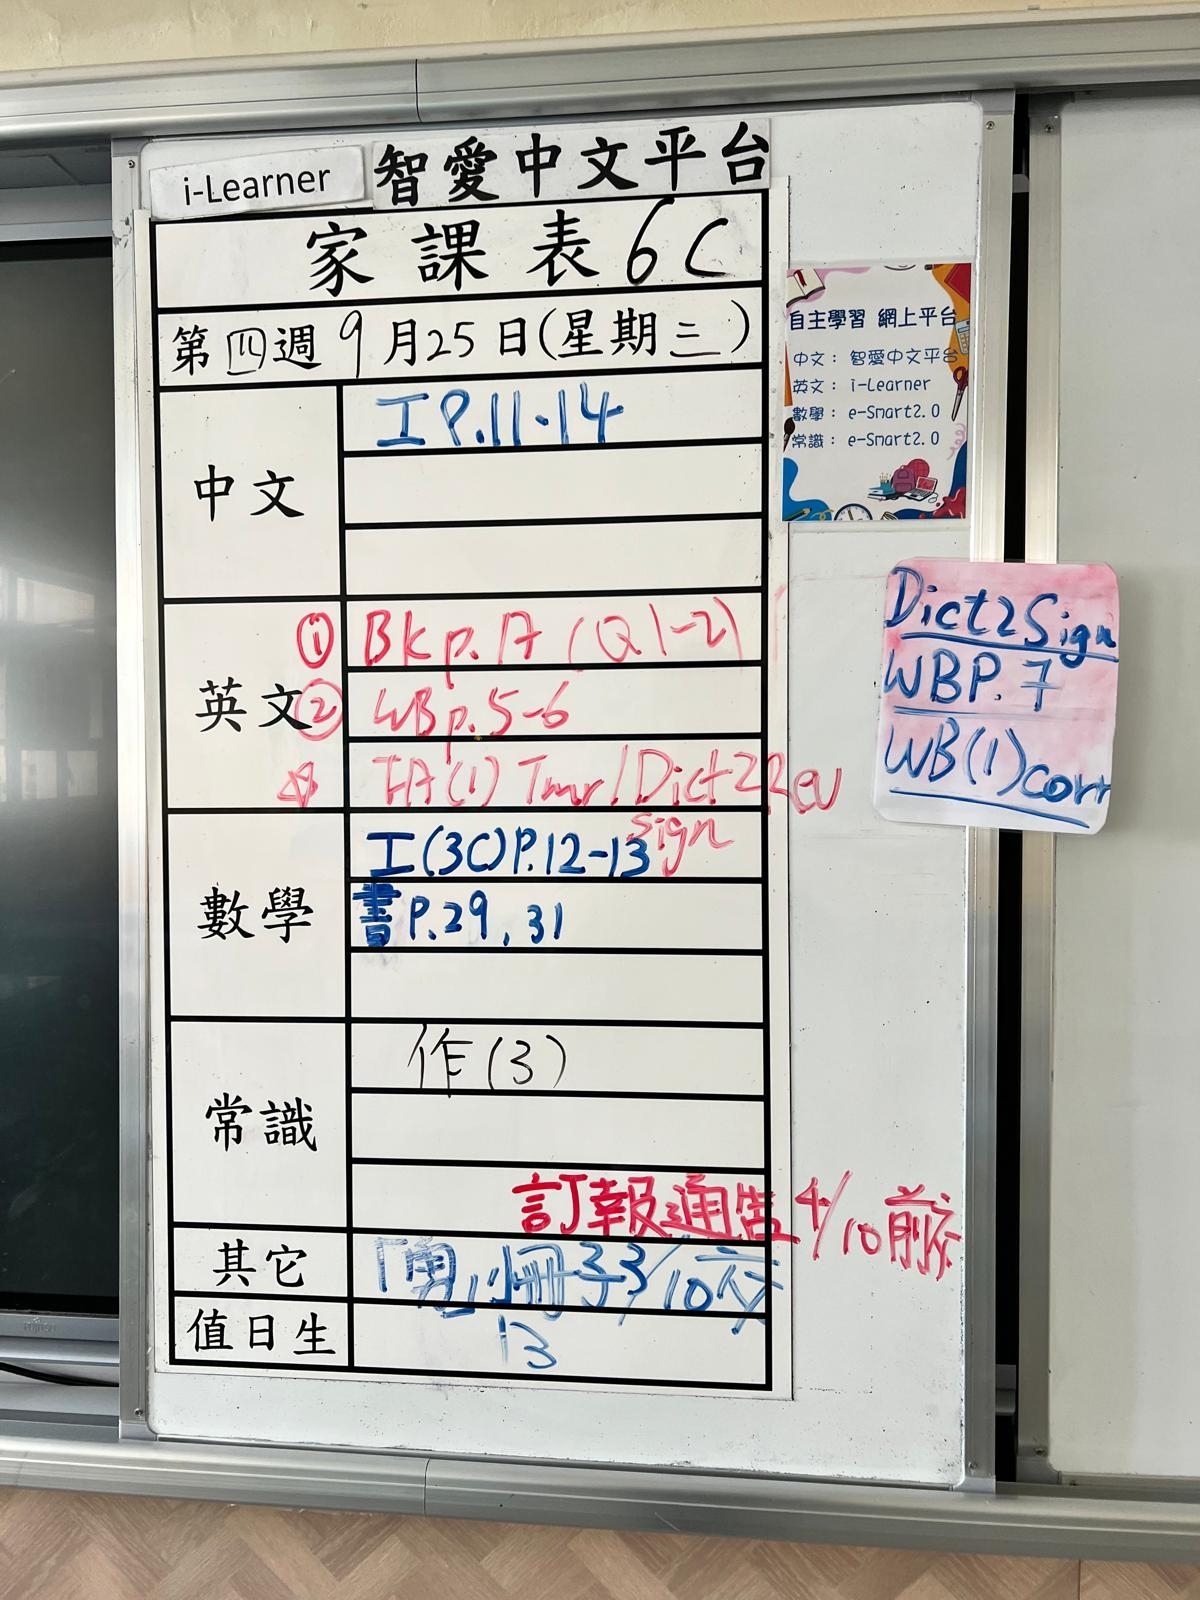 i-Learner 智愛中文平台
家課表 6C
第四週 9月25日(星期三)
中文
工P.11-14
英文
① BK p.17 (Q1-2)
② WB p.5-6
☆ TA(1) Tmr / Dict 2 Rev
sign
數學
工(3C)P.12-13
書P.29, 31
常識
作(3)
訂報通告 4/10前交
其它
小冊子 3/10交
值日生
13
自主學習 網上平台
中文： 智愛中文平台
英文： i-Learner
數學： e-Smart2.0
常識： e-Smart2.0
Dict2Sign
WBP.7
WB(1)corr